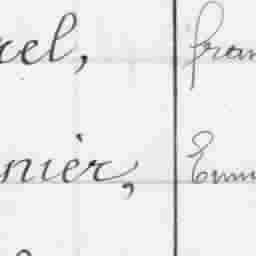 el, fran
nier, Emm